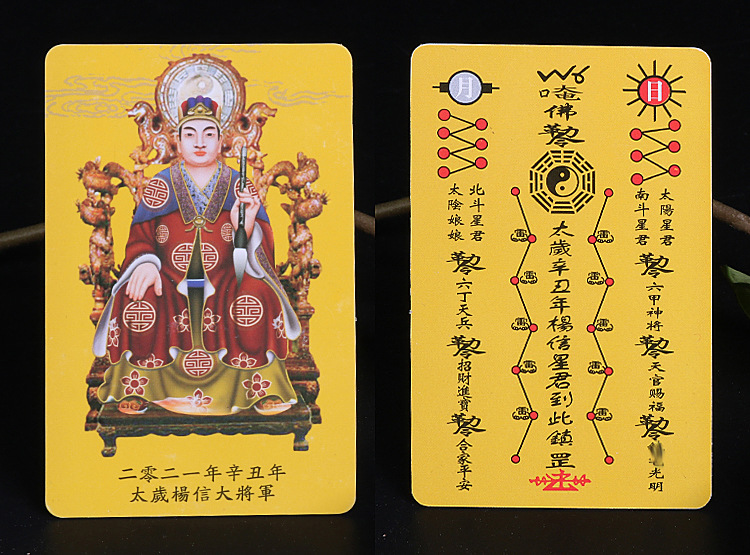 二零二一年辛丑年
太歲楊信大將軍
日
月
太陽星君
南斗星君
六甲神將
天官賜福
光明
唵佛
太歲辛丑年楊信星君到此鎮
罡
雷
雷
雷
雷
雷
雷
雷
雷
雷
雷
北斗星君
太陰娘娘
六丁天兵
招財進寶
合家平安